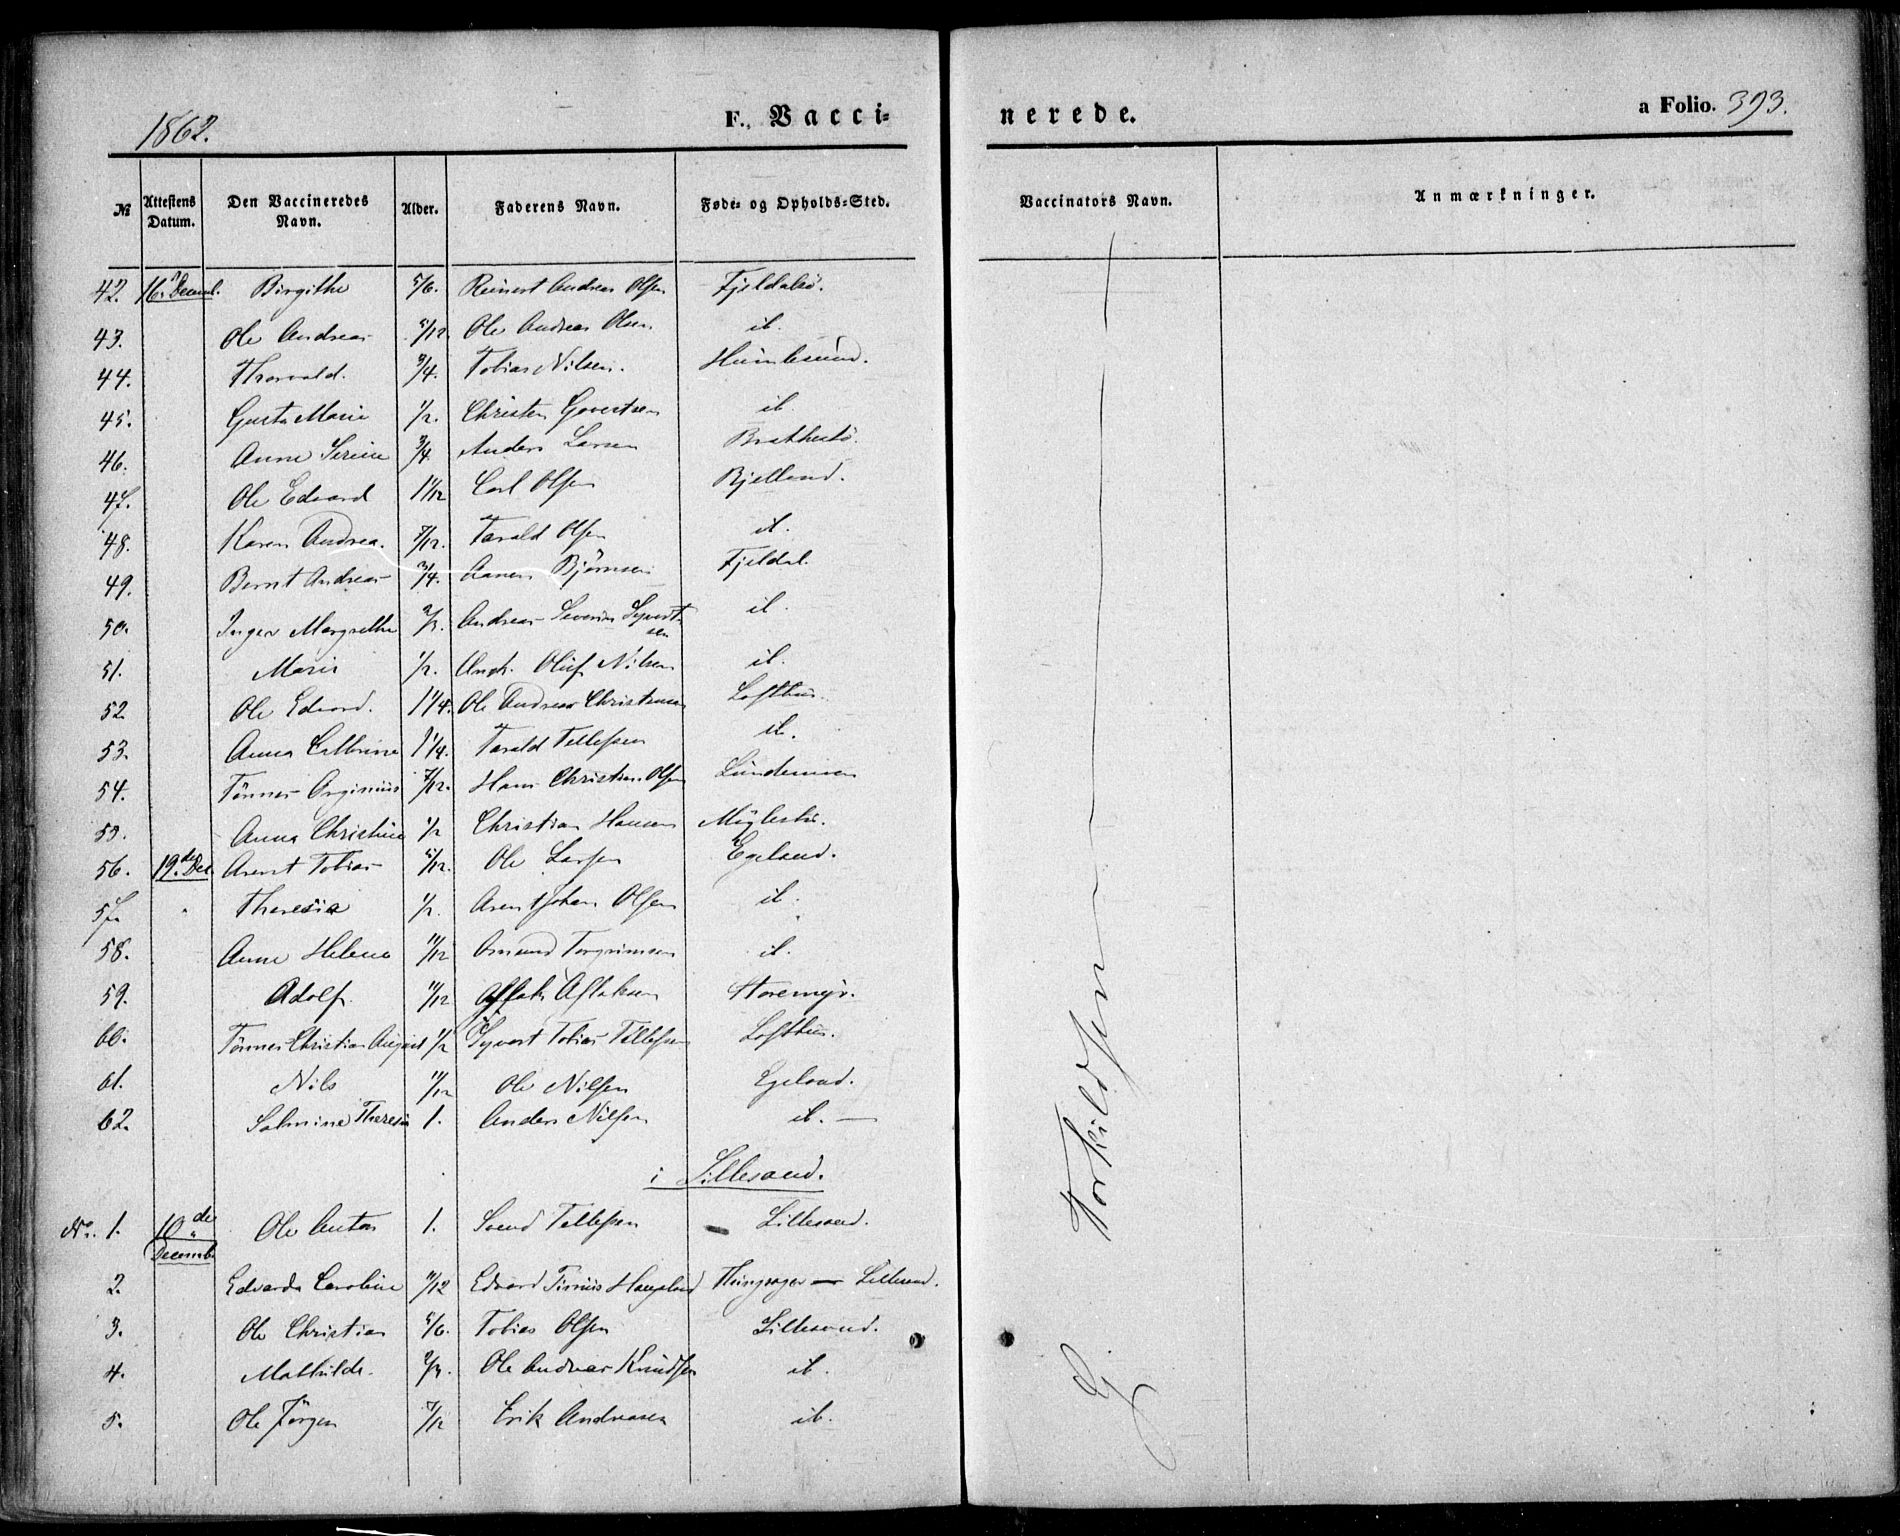 1862.
F., Vacci-
nerede.
a Folio. 393.
№ Attestens Datum. Den Vaccineredes Navn. Alder. Faderens Navn. Føde- og Opholds-Sted. Vaccinators Navn. Anmærkninger.
42. 16. Decemb. Birgithe 5/6. Reinert Andreas Olsen Fjeldalsö.
43. Ole Andreas 5/12. Ole Andreas Olsen ib.
44. Thorvald. 3/4. Tobias Nilsen. Humlesund.
45. Gusta Marie 1/2. Christen Govertsen ib.
46. Anne Serine 3/4 Anders Larsen Brekkestö.
47. Ole Edvard 1 1/12 Carl Olsen Bjelland.
48. Karen Andrea. 7/12. Tarald Olsen ib.
49. Bernt Andreas 3/4. Aanen Bjørnsen Fjeldal.
50. Inger Margrethe 2/3. Andreas Severin Syvert-
sen ib.
51. Marie 1/2. Andr. Oluf Nilsen ib.
52 Ole Edvard. 1 1/4. Ole Andreas Christensen Lofthus.
53. Anna Cathrine 1 1/4. Tarald Tellefsen ib.
54. Tönnes Orginius 7/12. Hans Christian Olsen Lundemoen
55. Anna Christine 1/2 Christian Hansen Möglestu.
56. 19. de Dec. Arent Tobias 5/12. Ole Larsen Egeland.
57. Theresia 1/2. Arent Johan Olsen ib.
58. Anne Helene 11/12 Omund Torgrimsen ib.
59. Adolf. 11/12 Aslak Aslaksen Storemyr.
60. Tönnes Christian August 1/2 Syvert Tobias Tellefsen Lofthus.
61. Nils 11/12 Ole Nilsen Egeland.
62. Salmine Theresia 1. Anders Nilsen ib. —
i Lillesand.
No. 1. 10 de Decemb. Ole Anton 1. Svend Tellefsen Lillesand.
2. Edvarda Caroline 11/12 Edvard Tinnius Haugland — Lillesand.
3. Ole Christian 5/6. Tobias Olsen Lillesand.
4. Mathilde. 2/3. Ole Andreas Knudsen ib.
5. Ole Jörgen 7/12 Erik Andreasen ib.
Torkildsen